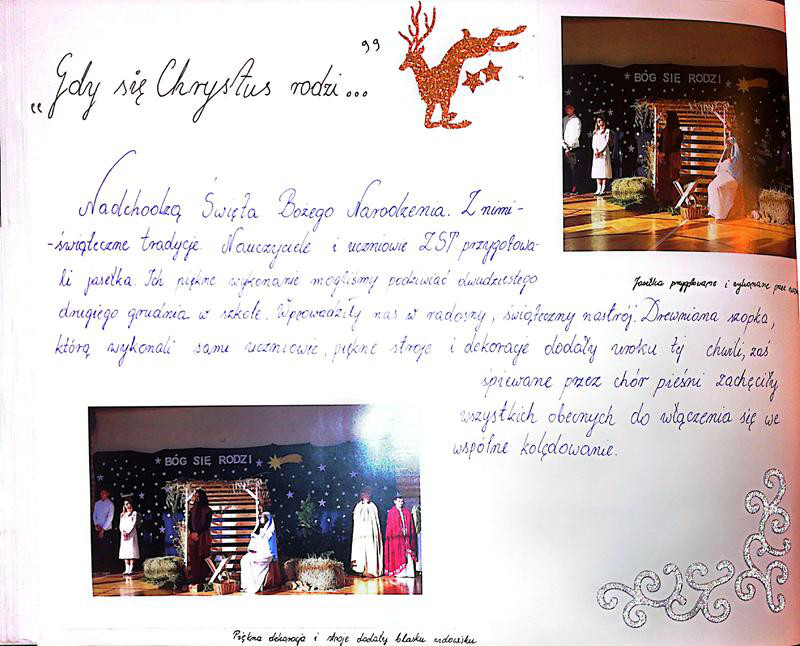 „Gdy się Chrystus rodzi..."
BÓG SIĘ RODZI
Nadchodzą Święta Bożego Narodzenia. Z nimi -
-świąteczne tradycje. Nauczyciele i uczniowie ZST przygotowa-
li jasełka. Ich piękne wykonanie mogliśmy podziwiać dwudziestego
Jasełka przygotowane i wykonane przez
drugiego grudnia w szkole. Wprowadziły nas w radosny, świąteczny nastrój. Drewniana szopka,
którą wykonali sami uczniowie, piękne stroje i dekoracje dodały uroku tej chwili, zaś
śpiewane przez chór pieśni zachęciły
wszystkich obecnych do włączenia się we
wspólne kolędowanie.
BÓG SIĘ RODZI
Piękna dekoracja i stroje dodały blasku widowisku